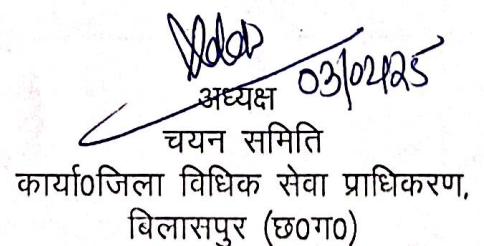 03/02/25
अध्यक्ष
चयन समिति
कार्या0जिला विधिक सेवा प्राधिकरण,
बिलासपुर (छ0ग0)